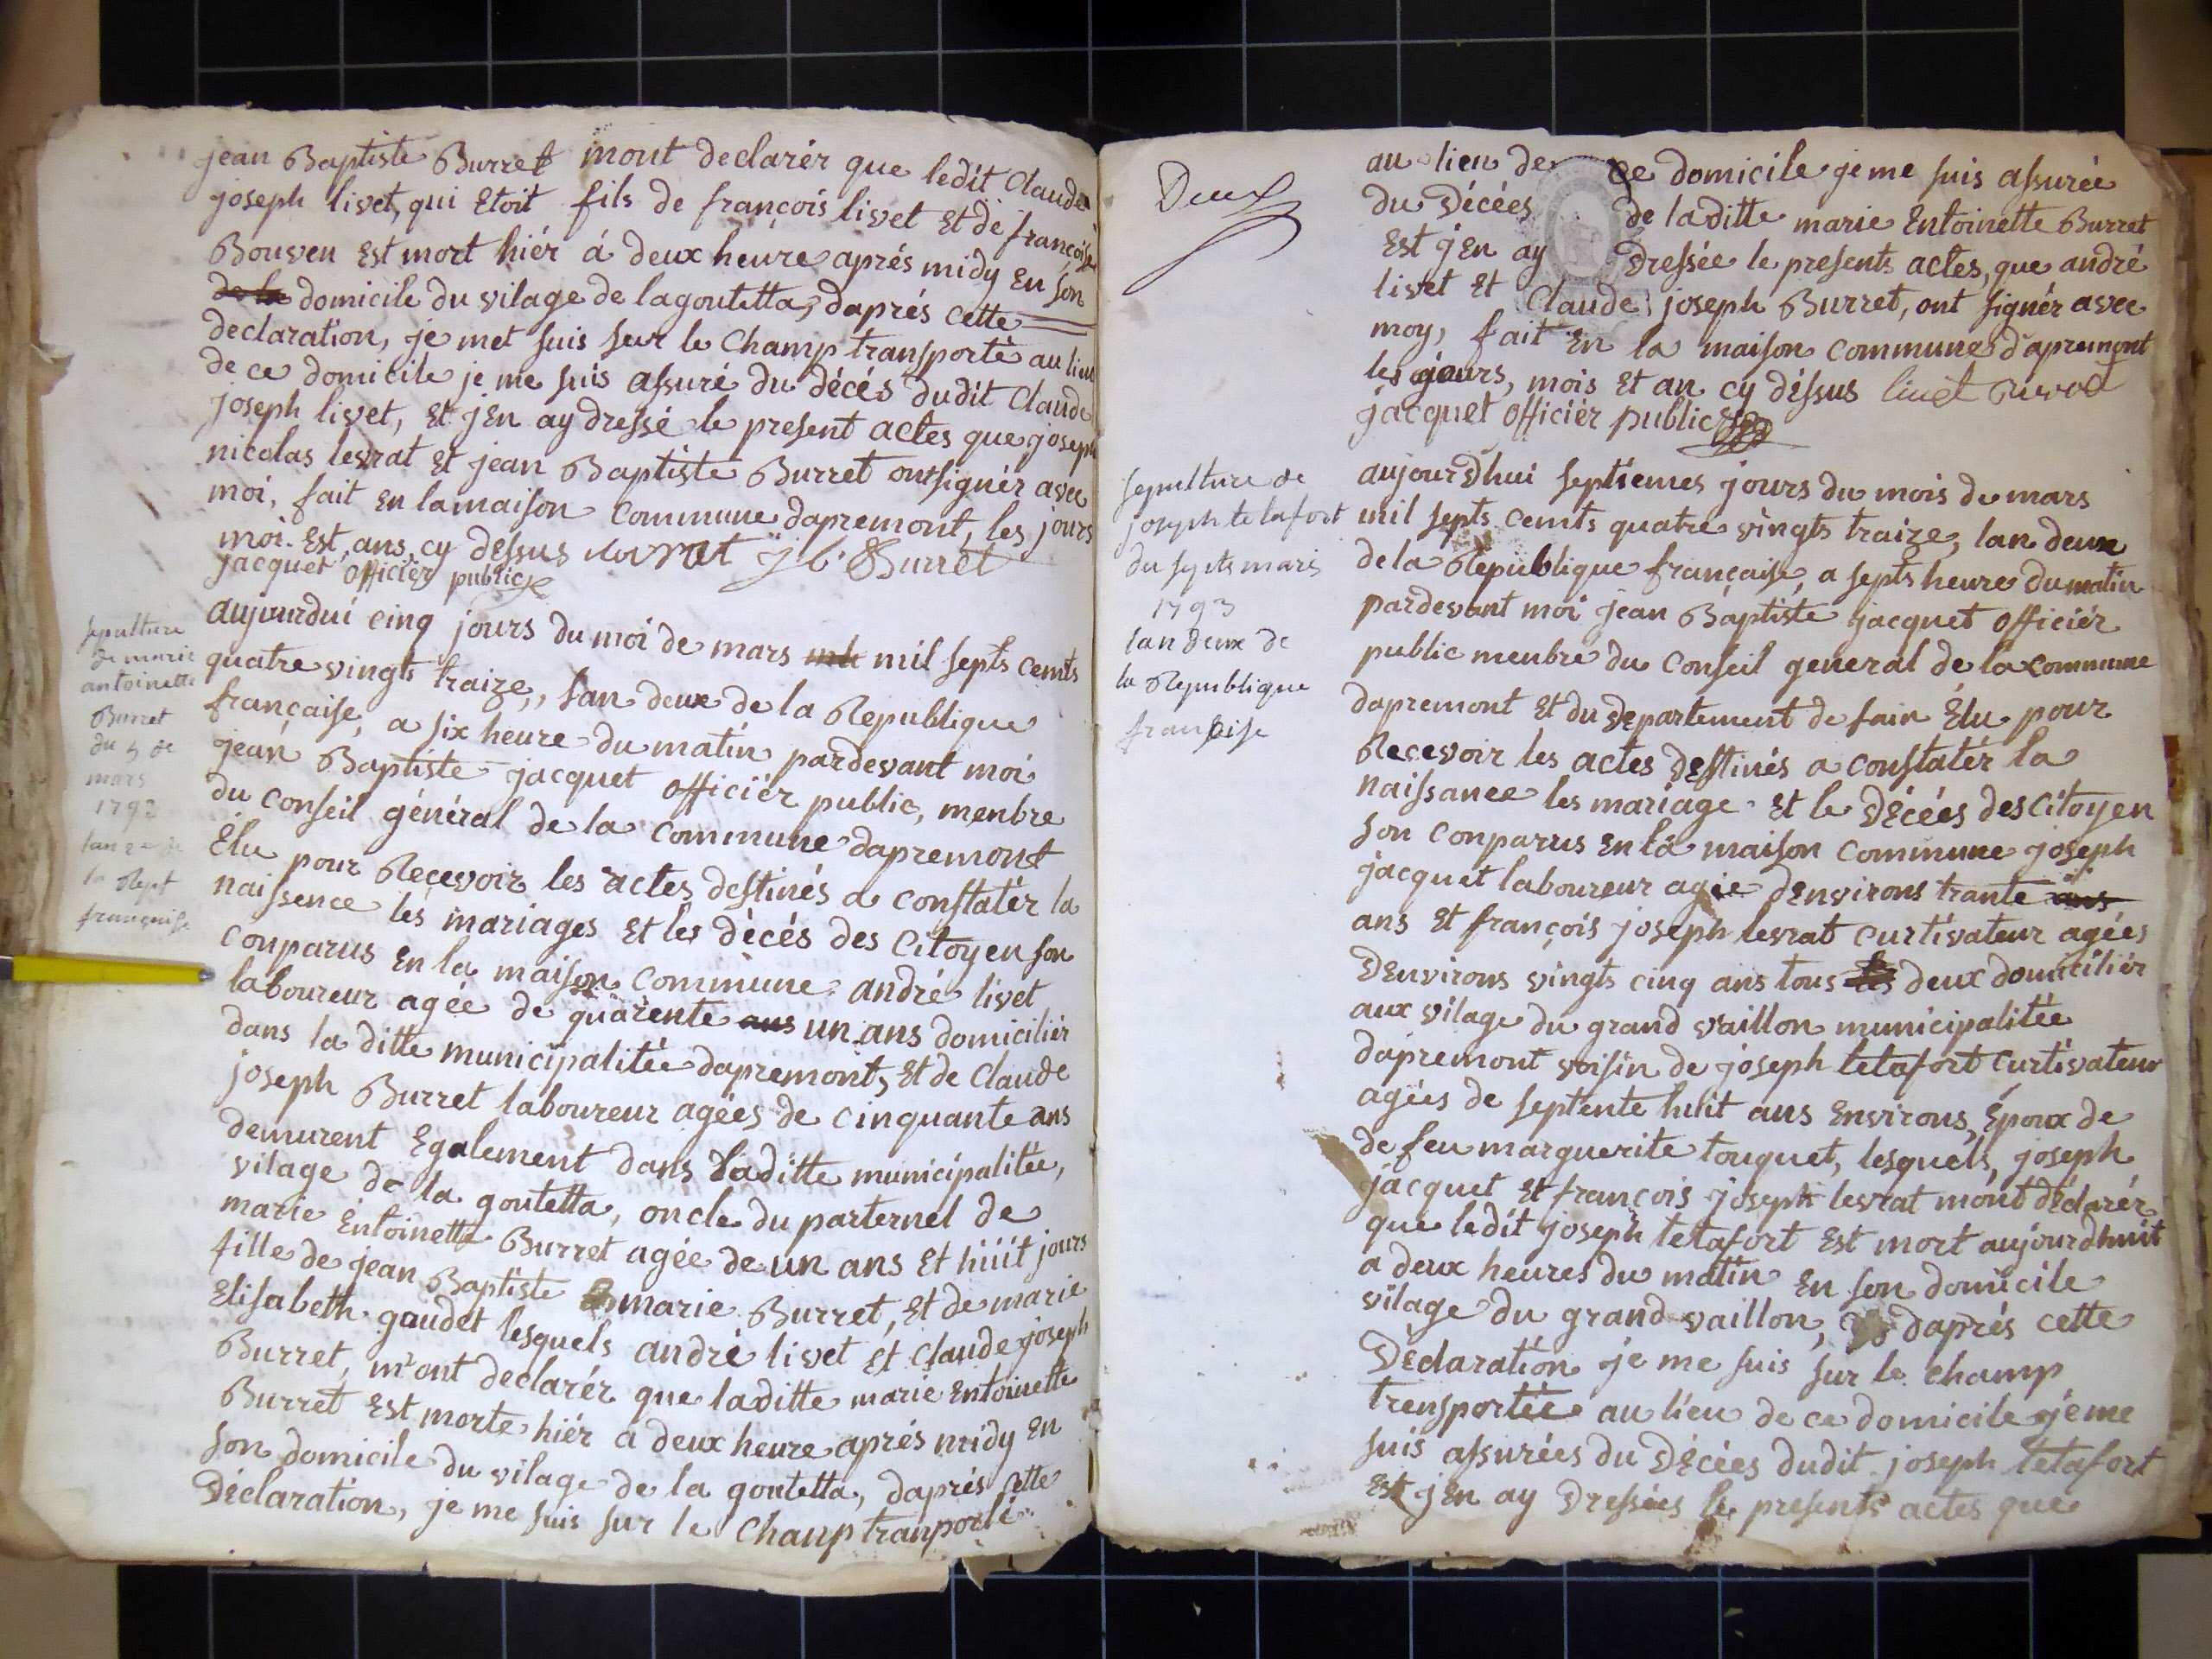 jean Baptiste Burret mont declarér que ledit Claude
joseph livet, qui Etoit fils de françois livet Et de françoise
Bouveu Est mort hiér á deux heure aprés midy En son
de la domicile du vilage de lagoutetta, daprés cette
declaration, je met suis sur le Champ transporté au lieu
de ce domicile je me suis assuré du décés dudit Claude
joseph livet, Et jEn ay dressé le present actes que joseph
nicolas levrat Et jean Baptiste Burret ont signér avec
moi, fait En la maison Commune dapremont, les jours
moi Est ans, cy dessus levrat j b Burret
jacquet officiér public
sepulture
de marie
antoinette
Burret
du 5 de
mars
1793
lan 2e de
la Rept
françaises
aujourdui cinq jours du moi de mars mil septs cents
quatre vingts traize, lan deux de la Republique
française, a six heure du matin pardevant moi
jean Baptiste jacquet officiér public, menbre
du conseil général de la commune dapremont
Élu pour Recevoir les actes destinés a constatér la
naissence les mariages Et les décés des Citoyen son
conparus En la maison Commune andré livet
laboureur agée de quarente ans un ans domiciliér
dans la ditte municipalitée dapremont, Et de Claude
joseph Burret laboureur agées de cinquante ans
demurent Egalement dans laditte municipalitée,
vilage de la goutetta, oncle du parternel de
marie Entoinette Burret agée de un ans Et huit jours
fille de jean Baptiste marie Burret, Et de marie
Elisabeth gaudet lesquels andré livet Et Claude joseph
Burret, m'ont declarér que laditte marie Entoinette
Burret Est morte hiér a deux heure aprés midy En
son domicile du vilage de la goutetta, daprés cette
Déclaration, je me suis sur le Chanp tranporté
Deux
au lieu de ce domicile je me suis assurée
du Décées de laditte marie Entoinette Burret
Est jEn ay Dressée le presents actes, que andré
livet Et Claude joseph Burret, ont signér avec
moy, fait En la maison commune dapremont
les jours, mois Et an cy dessus livet
jacquet officiér public
sepulture de
joseph tetafort
du septs mars
1793
lan deux de
la Republique
française
aujourdhui septiemes jours du mois de mars
mil septs cemts quatre vingts traize, lan deux
de la Republique française, a septs heure du matin
pardevant moi jean Baptiste jacquet officiér
public menbre du Conseil general de la commune
dapremont Et du Departement de lain Élu pour
Recevoir les actes destinés a constatér la
naissance les mariage Et le Décées des Citoyen
son conparus En la maison Commune joseph
jacquet laboureur agée dEnvirons trante ans
ans Et françois joseph levrat curtivateur agées
DEnvirons vingts cinq ans tous les deux domiciliér
aux vilage du grand vaillon municipalitée
dapremont voisin de joseph tetafort curtivateur
agées de septente huit ans Environs, Époux de
de feu marguerite touquet, lesquels, joseph
jacquet Et françois joseph levrat mont déclarér
que ledit joseph tetafort Est mort aujourdhuit
a deux heures du matin En son domicile
vilage du grand vaillon, daprés cette
Déclaration je me suis sur le champ
transportée au lieu de ce domicile je me
suis assurées du Décées dudit joseph tetafort
Est jEn ay Dressées le presents actes que